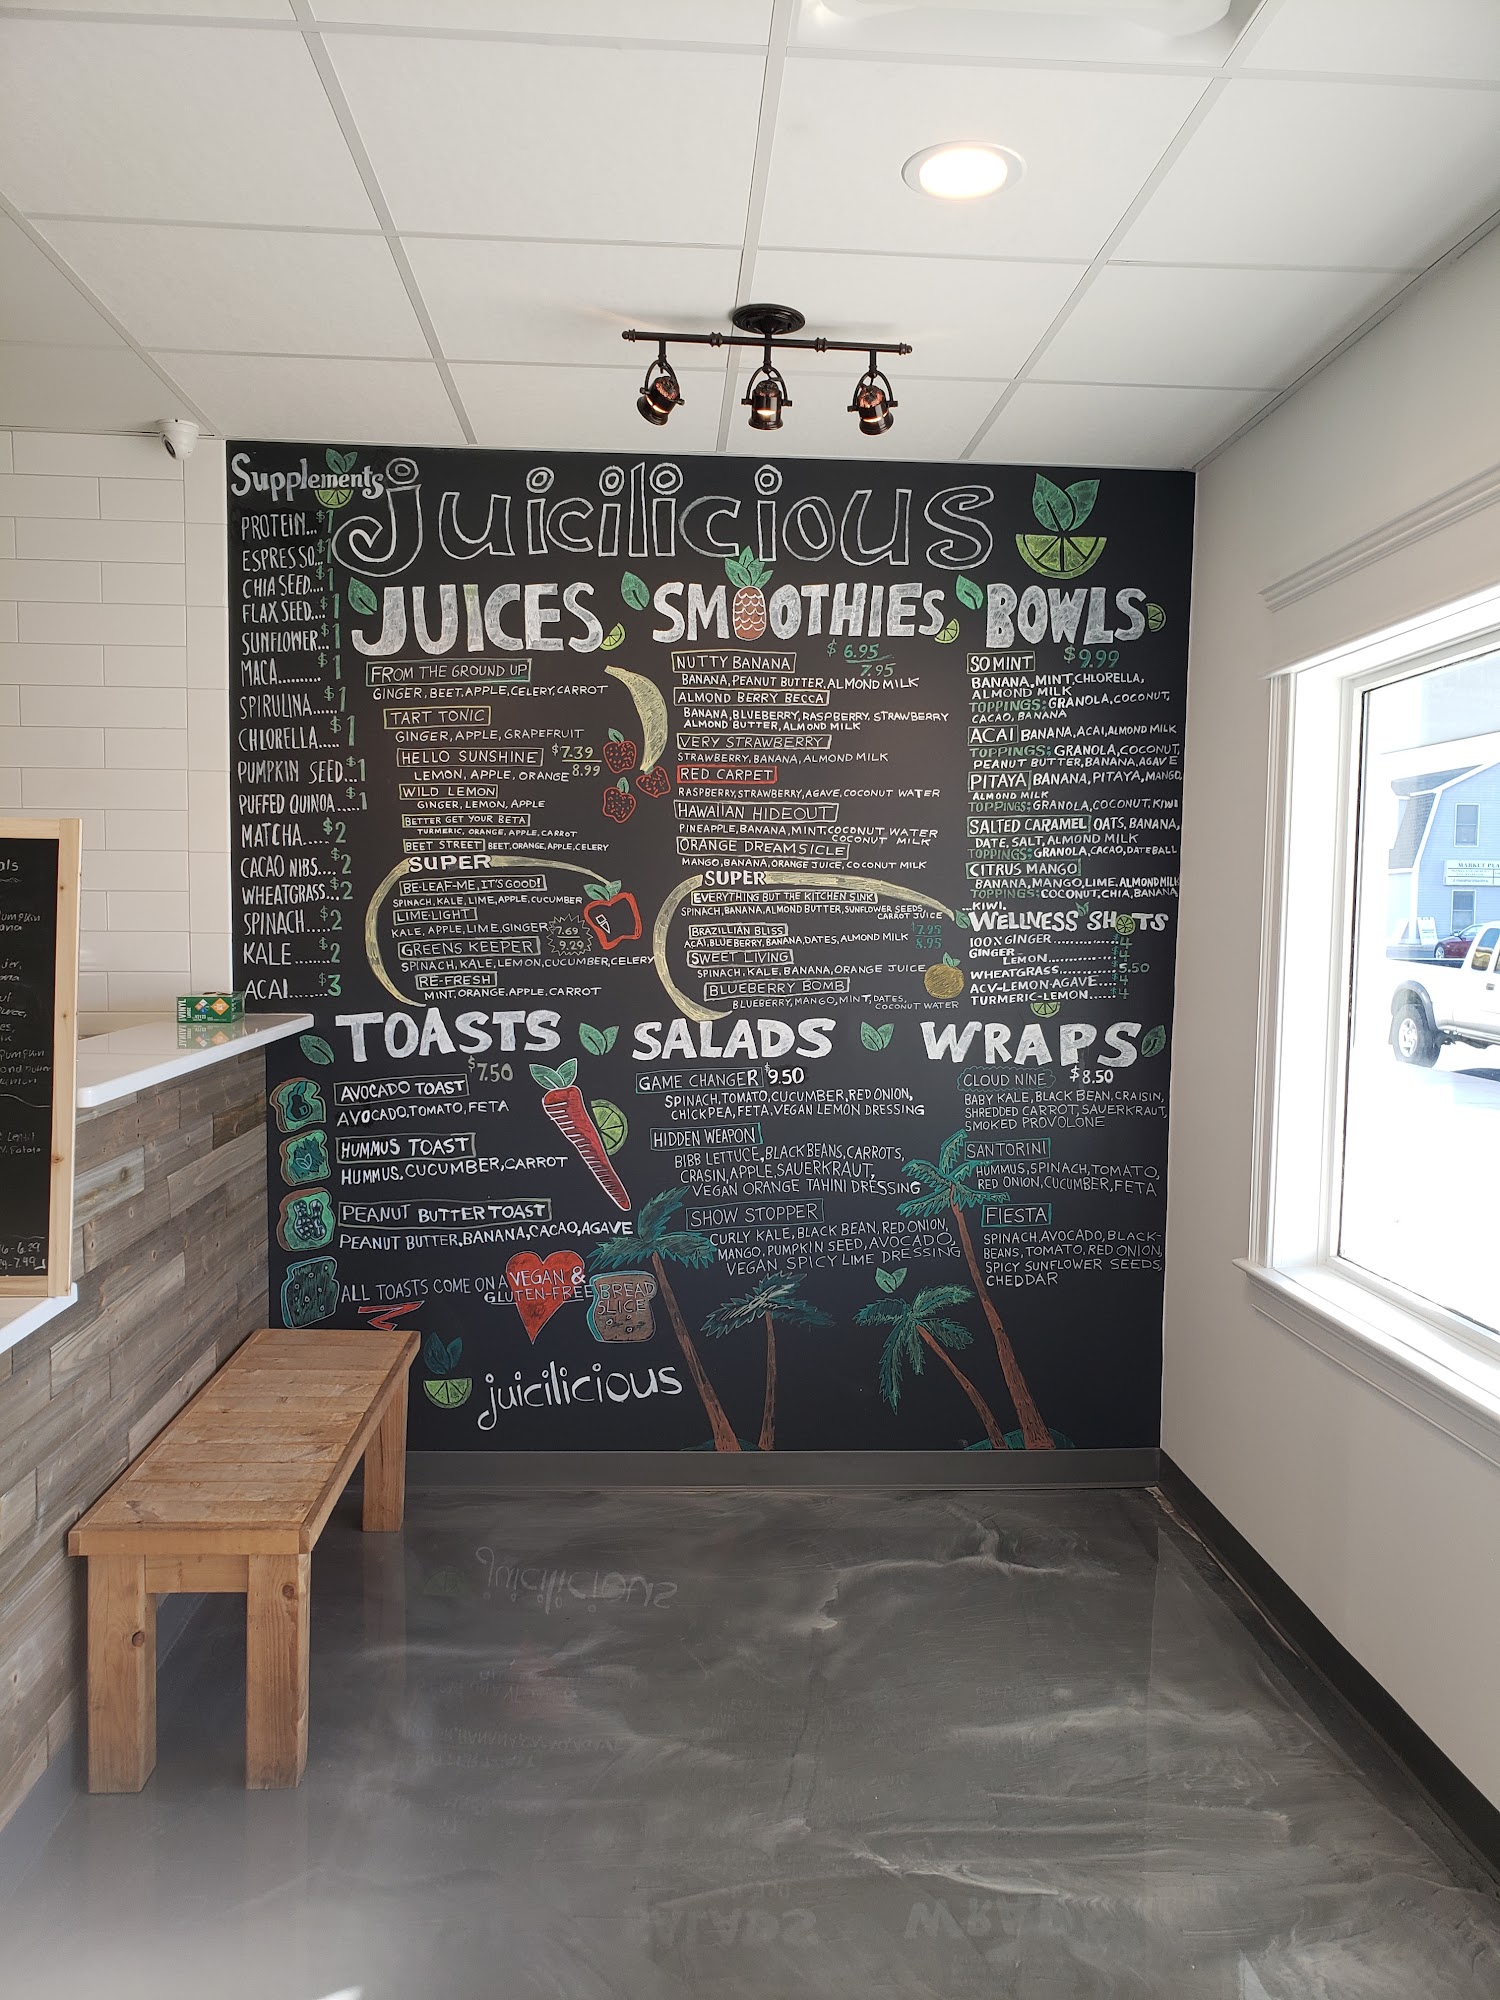 Supplements
PROTEIN...$1
ESPRESSO...$1
CHIA SEED....$1
FLAX SEED....$1
SUNFLOWER...$1
MACA..........$1
SPIRULINA......$1
CHLORELLA.....$1
PUMPKIN SEED...$1
PUFFED QUINOA.....$1
MATCHA....$2
CACAO NIBS...$2
WHEATGRASS..$2
SPINACH....$2
KALE.......$2
ACAI.......$3
juicilicious
JUICES
FROM THE GROUND UP
GINGER, BEET, APPLE, CELERY, CARROT
TART TONIC
GINGER, APPLE, GRAPEFRUIT
HELLO SUNSHINE $7.39
LEMON, APPLE, ORANGE 8.99
WILD LEMON
GINGER, LEMON, APPLE
BETTER GET YOUR BETA
TURMERIC, ORANGE, APPLE, CARROT
BEET STREET BEET, ORANGE, APPLE, CELERY
SUPER
BE-LEAF-ME, IT'S GOOD!
SPINACH, KALE, LIME, APPLE, CUCUMBER
LIME-LIGHT
KALE, APPLE, LIME, GINGER $7.69
GREENS KEEPER 9.29
SPINACH, KALE, LEMON, CUCUMBER, CELERY
RE-FRESH
MINT, ORANGE, APPLE, CARROT
SMOOTHIES
$6.95
7.95
NUTTY BANANA
BANANA, PEANUT BUTTER, ALMOND MILK
ALMOND BERRY BECCA
BANANA, BLUEBERRY, RASPBERRY, STRAWBERRY
ALMOND BUTTER, ALMOND MILK
VERY STRAWBERRY
STRAWBERRY, BANANA, ALMOND MILK
RED CARPET
RASPBERRY, STRAWBERRY, AGAVE, COCONUT WATER
HAWAIIAN HIDEOUT
PINEAPPLE, BANANA, MINT, COCONUT WATER
COCONUT MILK
ORANGE DREAMSICLE
MANGO, BANANA, ORANGE JUICE, COCONUT MILK
SUPER
EVERYTHING BUT THE KITCHEN SINK
SPINACH, BANANA, ALMOND BUTTER, SUNFLOWER SEEDS
CARROT JUICE
BRAZILLIAN BLISS $7.95
ACAI, BLUEBERRY, BANANA, DATES, ALMOND MILK 8.95
SWEET LIVING
SPINACH, KALE, BANANA, ORANGE JUICE
BLUEBERRY BOMB
BLUEBERRY, MANGO, MINT, DATES,
COCONUT WATER
BOWLS
SO MINT $9.99
BANANA, MINT, CHLORELLA,
ALMOND MILK
TOPPINGS: GRANOLA, COCONUT,
CACAO, BANANA
ACAI BANANA, ACAI, ALMOND MILK
TOPPINGS: GRANOLA, COCONUT,
PEANUT BUTTER, BANANA, AGAVE
PITAYA BANANA, PITAYA, MANGO,
ALMOND MILK
TOPPINGS: GRANOLA, COCONUT, KIWI
SALTED CARAMEL OATS, BANANA,
DATE, SALT, ALMOND MILK
TOPPINGS: GRANOLA, CACAO, DATE BALL
CITRUS MANGO
BANANA, MANGO, LIME, ALMOND MILK
TOPPINGS: COCONUT, CHIA, BANANA
...KIWI.
WELLNESS SHOTS
100% GINGER............$4
GINGER
LEMON..........$4
WHEATGRASS.........5.50
ACV-LEMON-AGAVE....$4
TURMERIC-LEMON......$4
TOASTS
$7.50
AVOCADO TOAST
AVOCADO, TOMATO, FETA
HUMMUS TOAST
HUMMUS, CUCUMBER, CARROT
PEANUT BUTTER TOAST
PEANUT BUTTER, BANANA, CACAO, AGAVE
ALL TOASTS COME ON A VEGAN &
GLUTEN-FREE BREAD
SLICE
juicilicious
SALADS
GAME CHANGER $9.50
SPINACH, TOMATO, CUCUMBER, RED ONION,
CHICKPEA, FETA, VEGAN LEMON DRESSING
HIDDEN WEAPON
BIBB LETTUCE, BLACK BEANS, CARROTS,
CRASIN, APPLE, SAUERKRAUT,
VEGAN ORANGE TAHINI DRESSING
SHOW STOPPER
CURLY KALE, BLACK BEAN, RED ONION,
MANGO, PUMPKIN SEED, AVOCADO,
VEGAN SPICY LIME DRESSING
WRAPS
CLOUD NINE $8.50
BABY KALE, BLACK BEAN, CRAISIN,
SHREDDED CARROT, SAUERKRAUT,
SMOKED PROVOLONE
SANTORINI
HUMMUS, SPINACH, TOMATO,
RED ONION, CUCUMBER, FETA
FIESTA
SPINACH, AVOCADO, BLACK-
BEANS, TOMATO, RED ONION,
SPICY SUNFLOWER SEEDS,
CHEDDAR
MARKET PLA